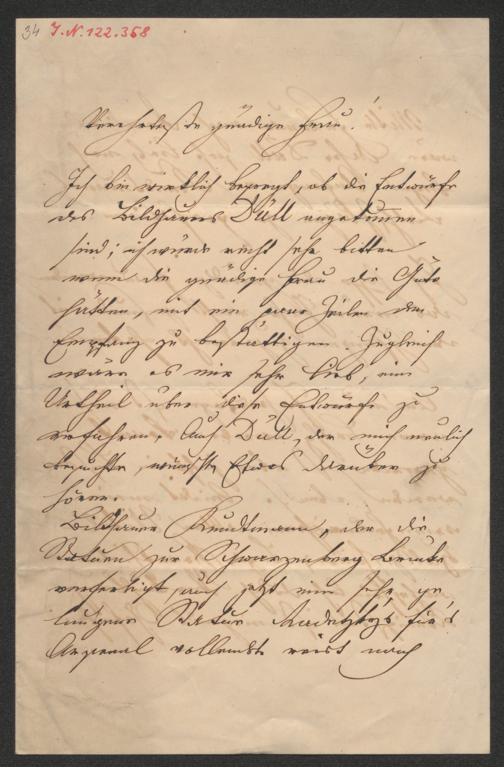 34 I. N. 122.358
Verehrteste gnädige Frau!
Ich bin wirklich besorgt, ob die Entwürfe
des Bildhauers Düll angekommen
sind; ich würde recht sehr bitten
wenn die gnädige Frau die Güte
hätten, mit ein paar Zeilen den
Empfang zu bestättigen. Zugleich
wäre es mir sehr lieb, ein
Urtheil über diese Entwürfe zu
erfahren. Auch Düll, der mich neulich
besuchte, wünscht Etwas darüber zu
hören.
Bildhauer Kundtmann, der die
Statuen zur Schwarzenberg Brücke
verfertigt, auch jetzt eine sehr ge
lungene Statue Radetzkys für's
Arsenal vollendete reist nach